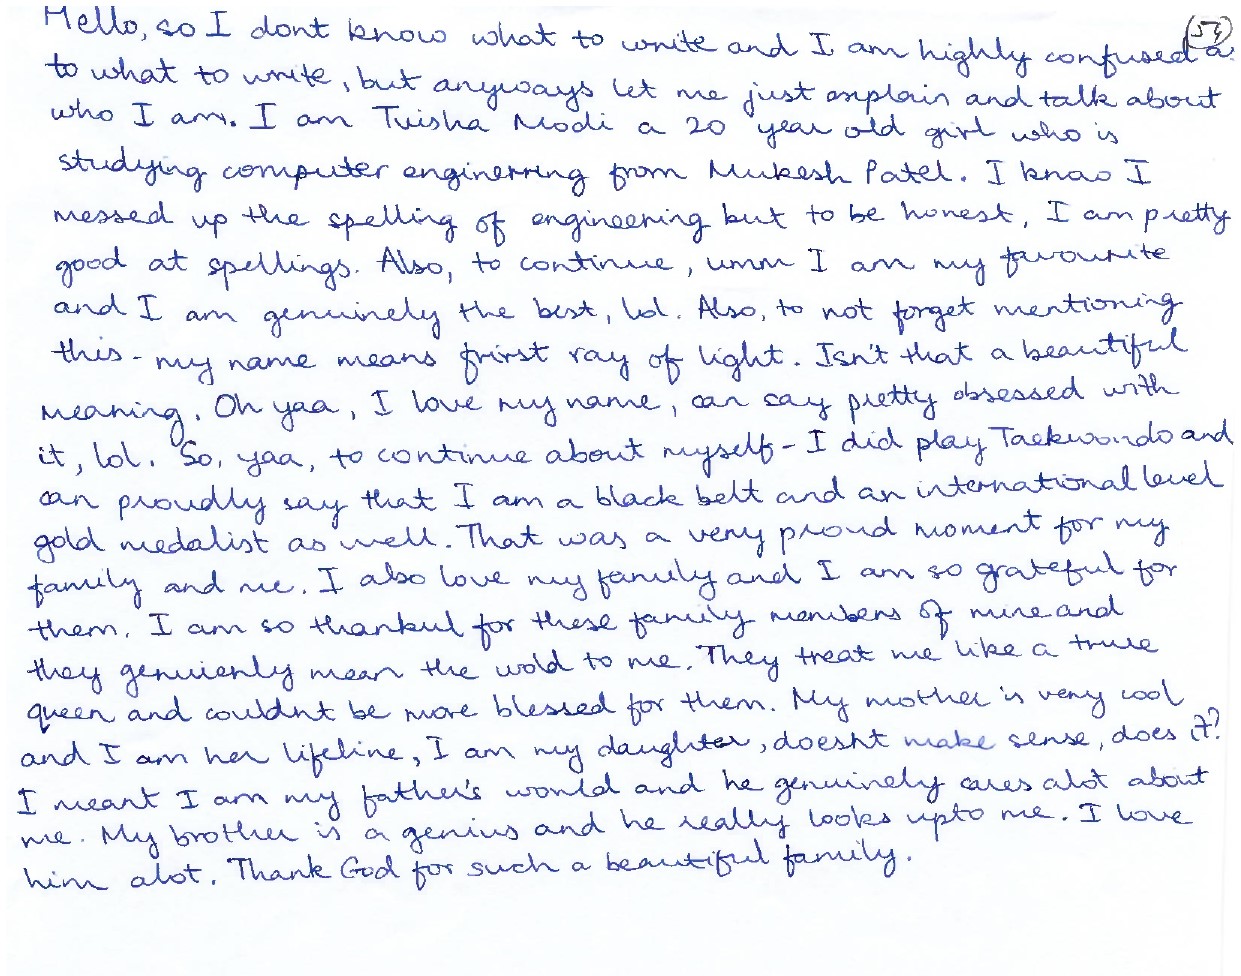 54
Hello, so I dont know what to write and I am highly confused as
to what to write, but anyways let me just explain and talk about
who I am. I am Tvisha Modi a 20 year old girl who is
studying computer enginerring from Mukesh Patel. I know I
messed up the spelling of engineering but to be honest, I am pretty
good at spellings. Also, to continue, umm I am my favourite
and I am genuinely the best, lol. Also, to not forget mentioning
this - my name means frirst ray of light. Isn't that a beautiful
meaning. Oh yaa, I love my name, can say pretty obsessed with
it, lol. So, yaa, to continue about myself - I did play Taekwondo and
can proudly say that I am a black belt and an international level
gold medalist as well. That was a very proud moment for my
family and me. I also love my family and I am so grateful for
them. I am so thankul for these family members of mine and
they genuienly mean the wold to me. They treat me like a true
queen and couldnt be more blessed for them. My mother is very cool
and I am her lifeline, I am my daughter, doesnt make sense, does it?
I meant I am my father's world and he genuinely cares alot about
me. My brother is a genius and he really looks upto me. I love
him alot. Thank God for such a beautiful family.